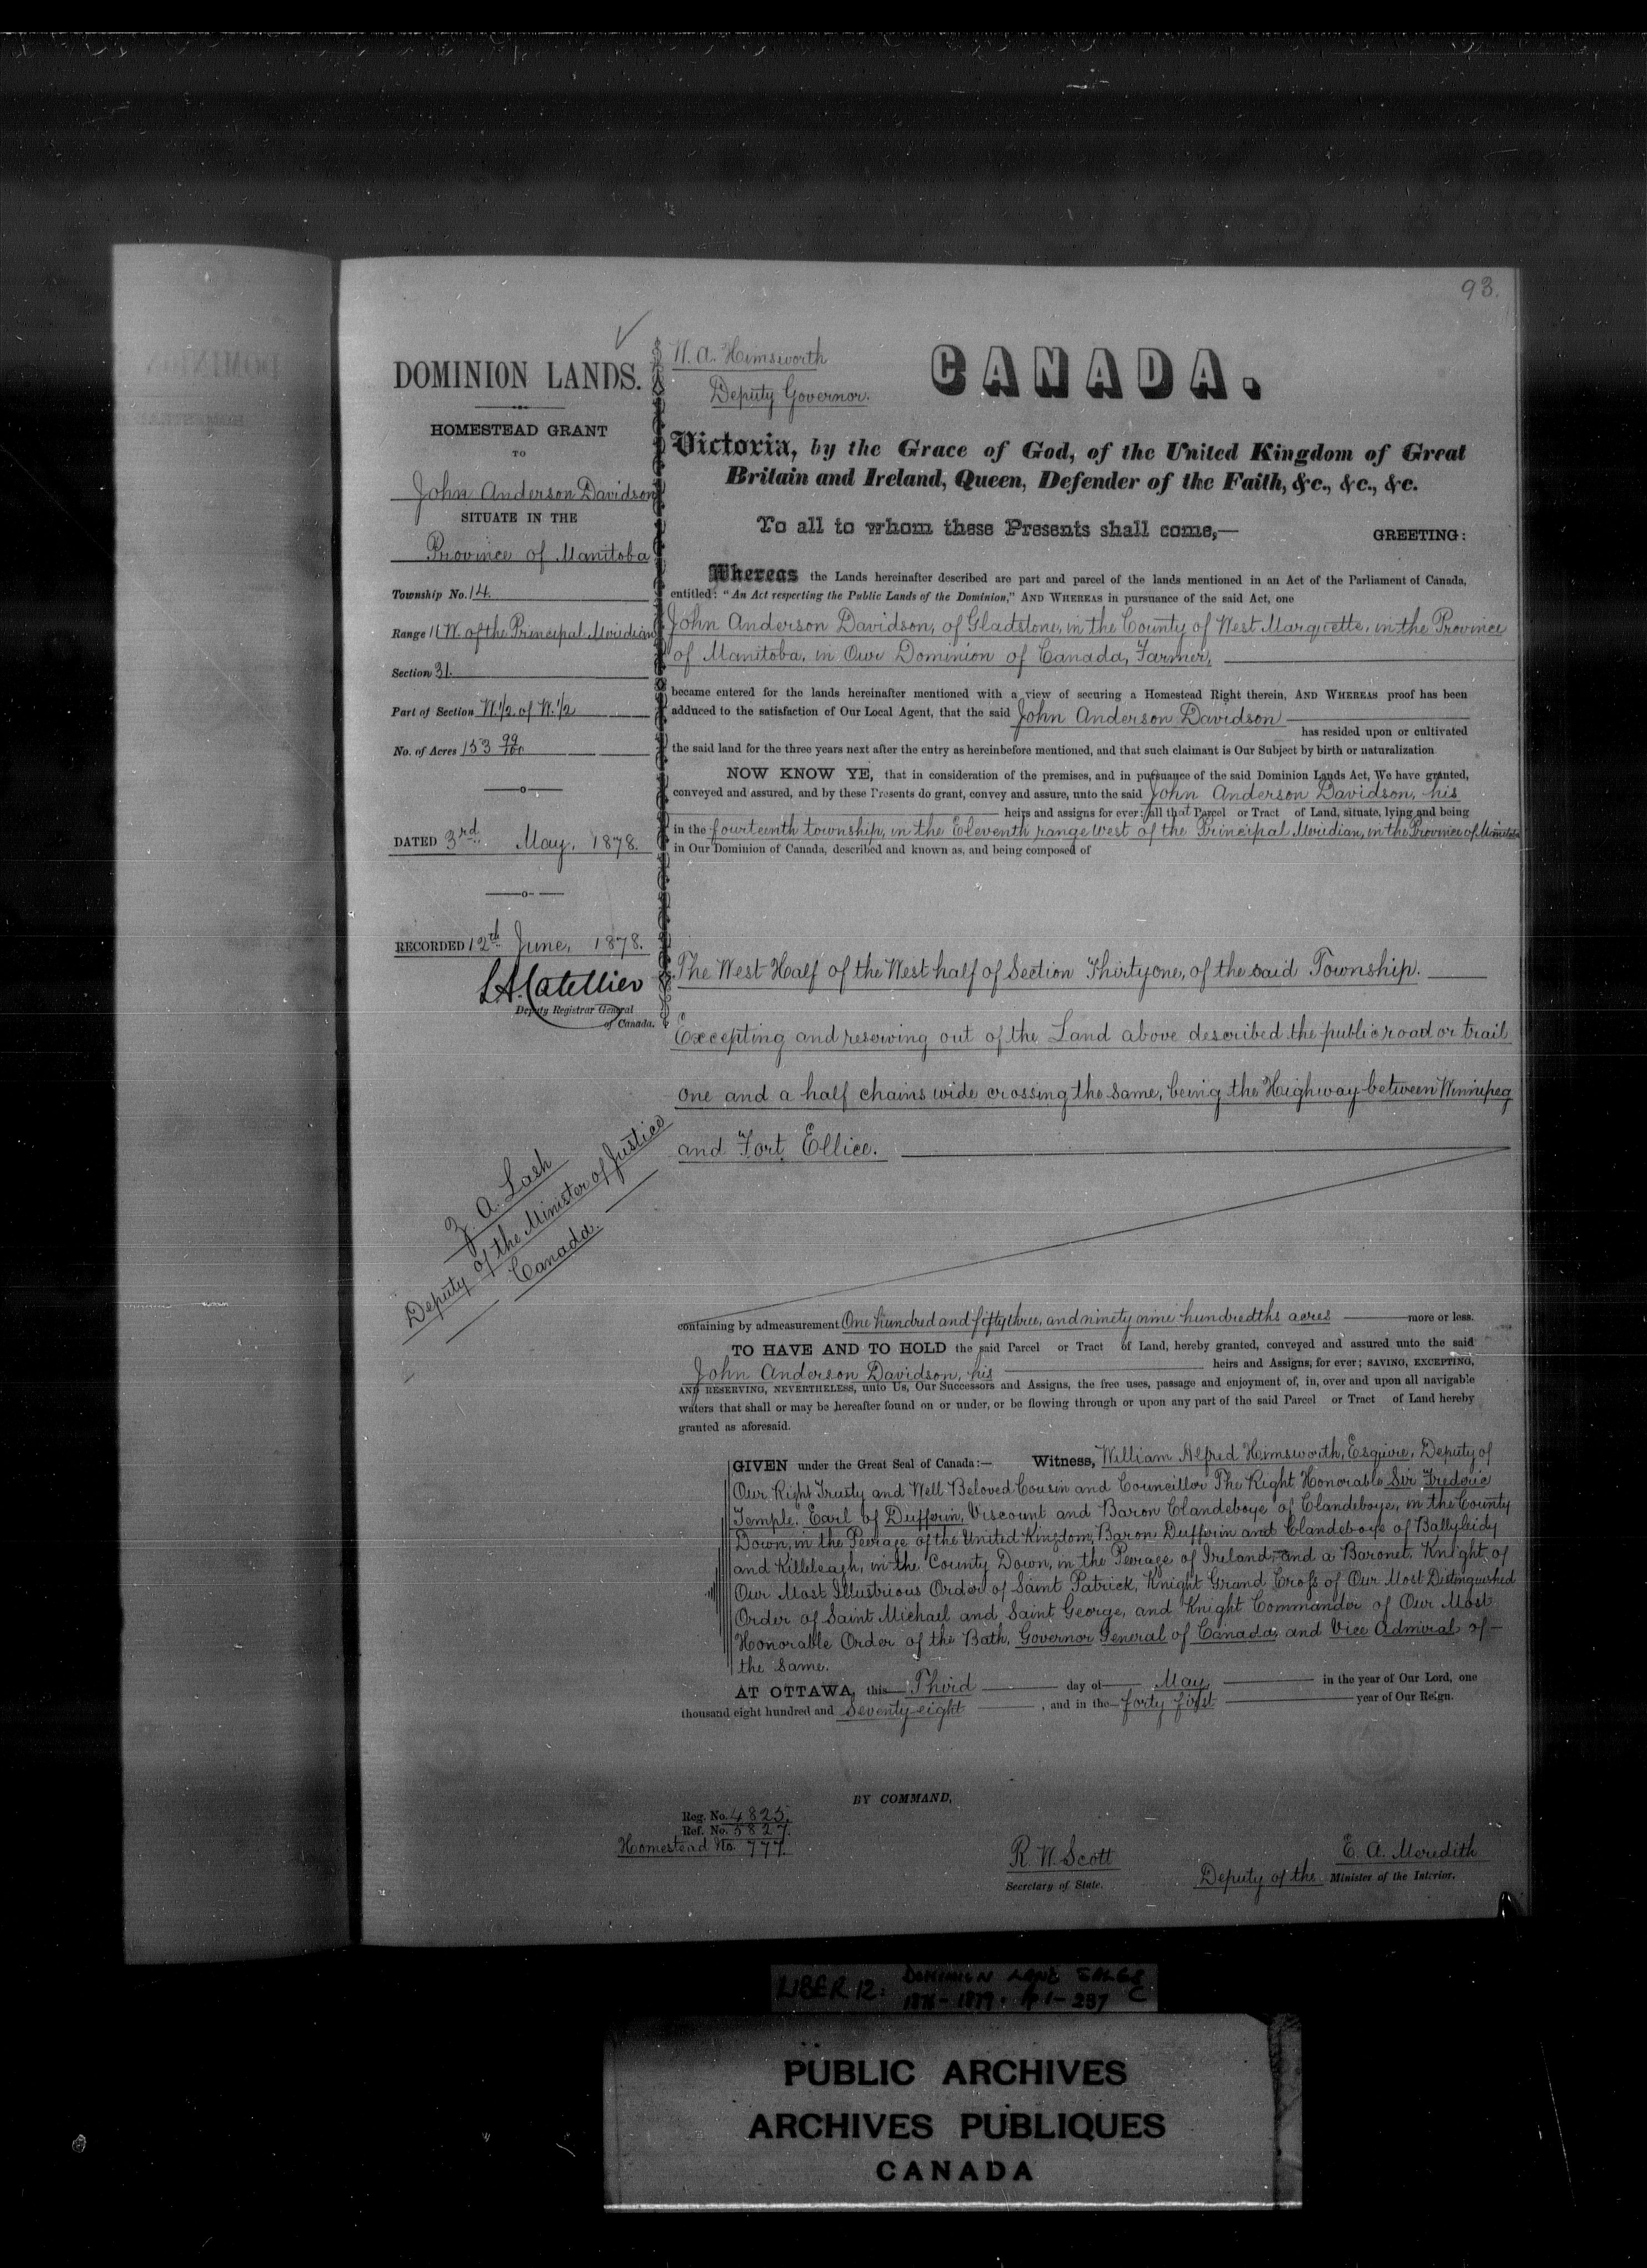 93.
DOMINION LANDS.
HOMESTEAD GRANT
TO
John Anderson Davidson
SITUATE IN THE
Province of Manitoba
Township No. 14.
Range 11 W. of the Principal Meridian
Section 31.
Part of Section W. 1/2 of W. 1/2
No. of Acres 153 99/100
DATED 3rd May, 1878.
RECORDED 12th June, 1878.
L.A. Catellier
Deputy Registrar General
of Canada.
Z. A. Lash
Deputy of the Minister of Justice
Canada.
W. A. Himsworth
Deputy Governor.
CANADA.
Victoria, by the Grace of God, of the United Kingdom of Great
Britain and Ireland, Queen, Defender of the Faith, &c., &c., &c.
To all to whom these Presents shall come,— GREETING:
Whereas the Lands hereinafter described are part and parcel of the lands mentioned in an Act of the Parliament of Canada,
entitled: "An Act respecting the Public Lands of the Dominion," AND WHEREAS in pursuance of the said Act, one
John Anderson Davidson, of Gladstone, in the County of West Marquette, in the Province
of Manitoba, in Our Dominion of Canada, Farmer,
became entered for the lands hereinafter mentioned with a view of securing a Homestead Right therein, AND WHEREAS proof has been
adduced to the satisfaction of Our Local Agent, that the said John Anderson Davidson
has resided upon or cultivated
the said land for the three years next after the entry as hereinbefore mentioned, and that such claimant is Our Subject by birth or naturalization
NOW KNOW YE, that in consideration of the premises, and in pursuance of the said Dominion Lands Act, We have granted,
conveyed and assured, and by these Presents do grant, convey and assure, unto the said John Anderson Davidson, his
heirs and assigns for ever; all that Parcel or Tract of Land, situate, lying and being
in the fourteenth township, in the Eleventh range West of the Principal Meridian, in the Province of Manitoba
in Our Dominion of Canada, described and known as, and being composed of
The West Half of the West half of Section Thirtyone, of the said Township.
Excepting and reserving out of the Land above described the public road or trail
one and a half chains wide crossing the same, being the Highway between Winnipeg
and Fort Ellice.
containing by admeasurement One hundred and fifty three, and ninety nine hundredths acres more or less.
TO HAVE AND TO HOLD the said Parcel or Tract of Land, hereby granted, conveyed and assured unto the said
John Anderson Davidson, his heirs and Assigns, for ever; SAVING, EXCEPTING,
AND RESERVING, NEVERTHELESS, unto Us, Our Successors and Assigns, the free uses, passage and enjoyment of, in, over and upon all navigable
waters that shall or may be hereafter found on or under, or be flowing through or upon any part of the said Parcel or Tract of Land hereby
granted as aforesaid.
GIVEN under the Great Seal of Canada:— Witness, William Alfred Himsworth, Esquire, Deputy of
Our Right Trusty and Well Beloved Cousin and Councillor The Right Honorable Sir Frederic
Temple, Earl of Dufferin, Viscount and Baron Clandeboye of Clandeboye, in the County
Down, in the Peerage of the United Kingdom, Baron Dufferin and Clandeboye of Ballyleidy
and Killeleagh, in the County Down, in the Peerage of Ireland, and a Baronet, Knight of
Our Most Illustrious Order of Saint Patrick, Knight Grand Cross of Our Most Distinguished
Order of Saint Michael and Saint George, and Knight Commander of Our Most
Honorable Order of the Bath, Governor General of Canada, and Vice Admiral of
the Same.
AT OTTAWA, this Third day of May in the year of Our Lord, one
thousand eight hundred and Seventy eight, and in the forty first year of Our Reign.
BY COMMAND,
Reg. No. 4825.
Ref. No. 5827.
Homestead No. 777.
R. W. Scott
Secretary of State.
E. A. Meredith
Deputy of the Minister of the Interior.
LIBER 12: DOMINION LAND SALES
1878-1879. pp 1-287 C
PUBLIC ARCHIVES
ARCHIVES PUBLIQUES
CANADA